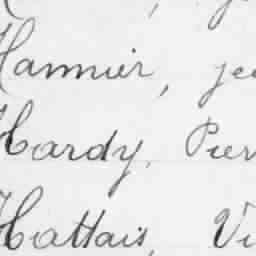 Hannier, je
Hardy, Pier
Hattais, Vi